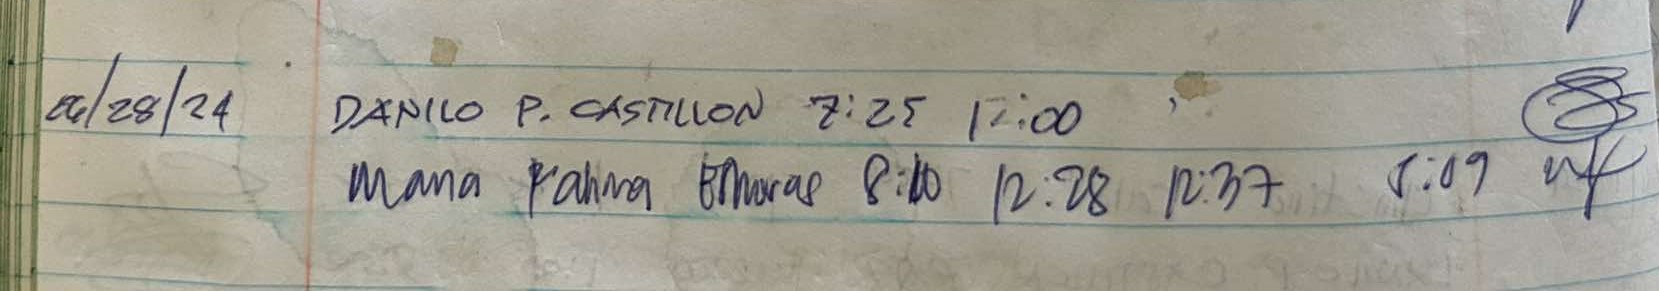 06/28/24 DANILO P. CASTILLON 7:25 12:00
Maria Fatima 8:10 12:28 12:37 5:09